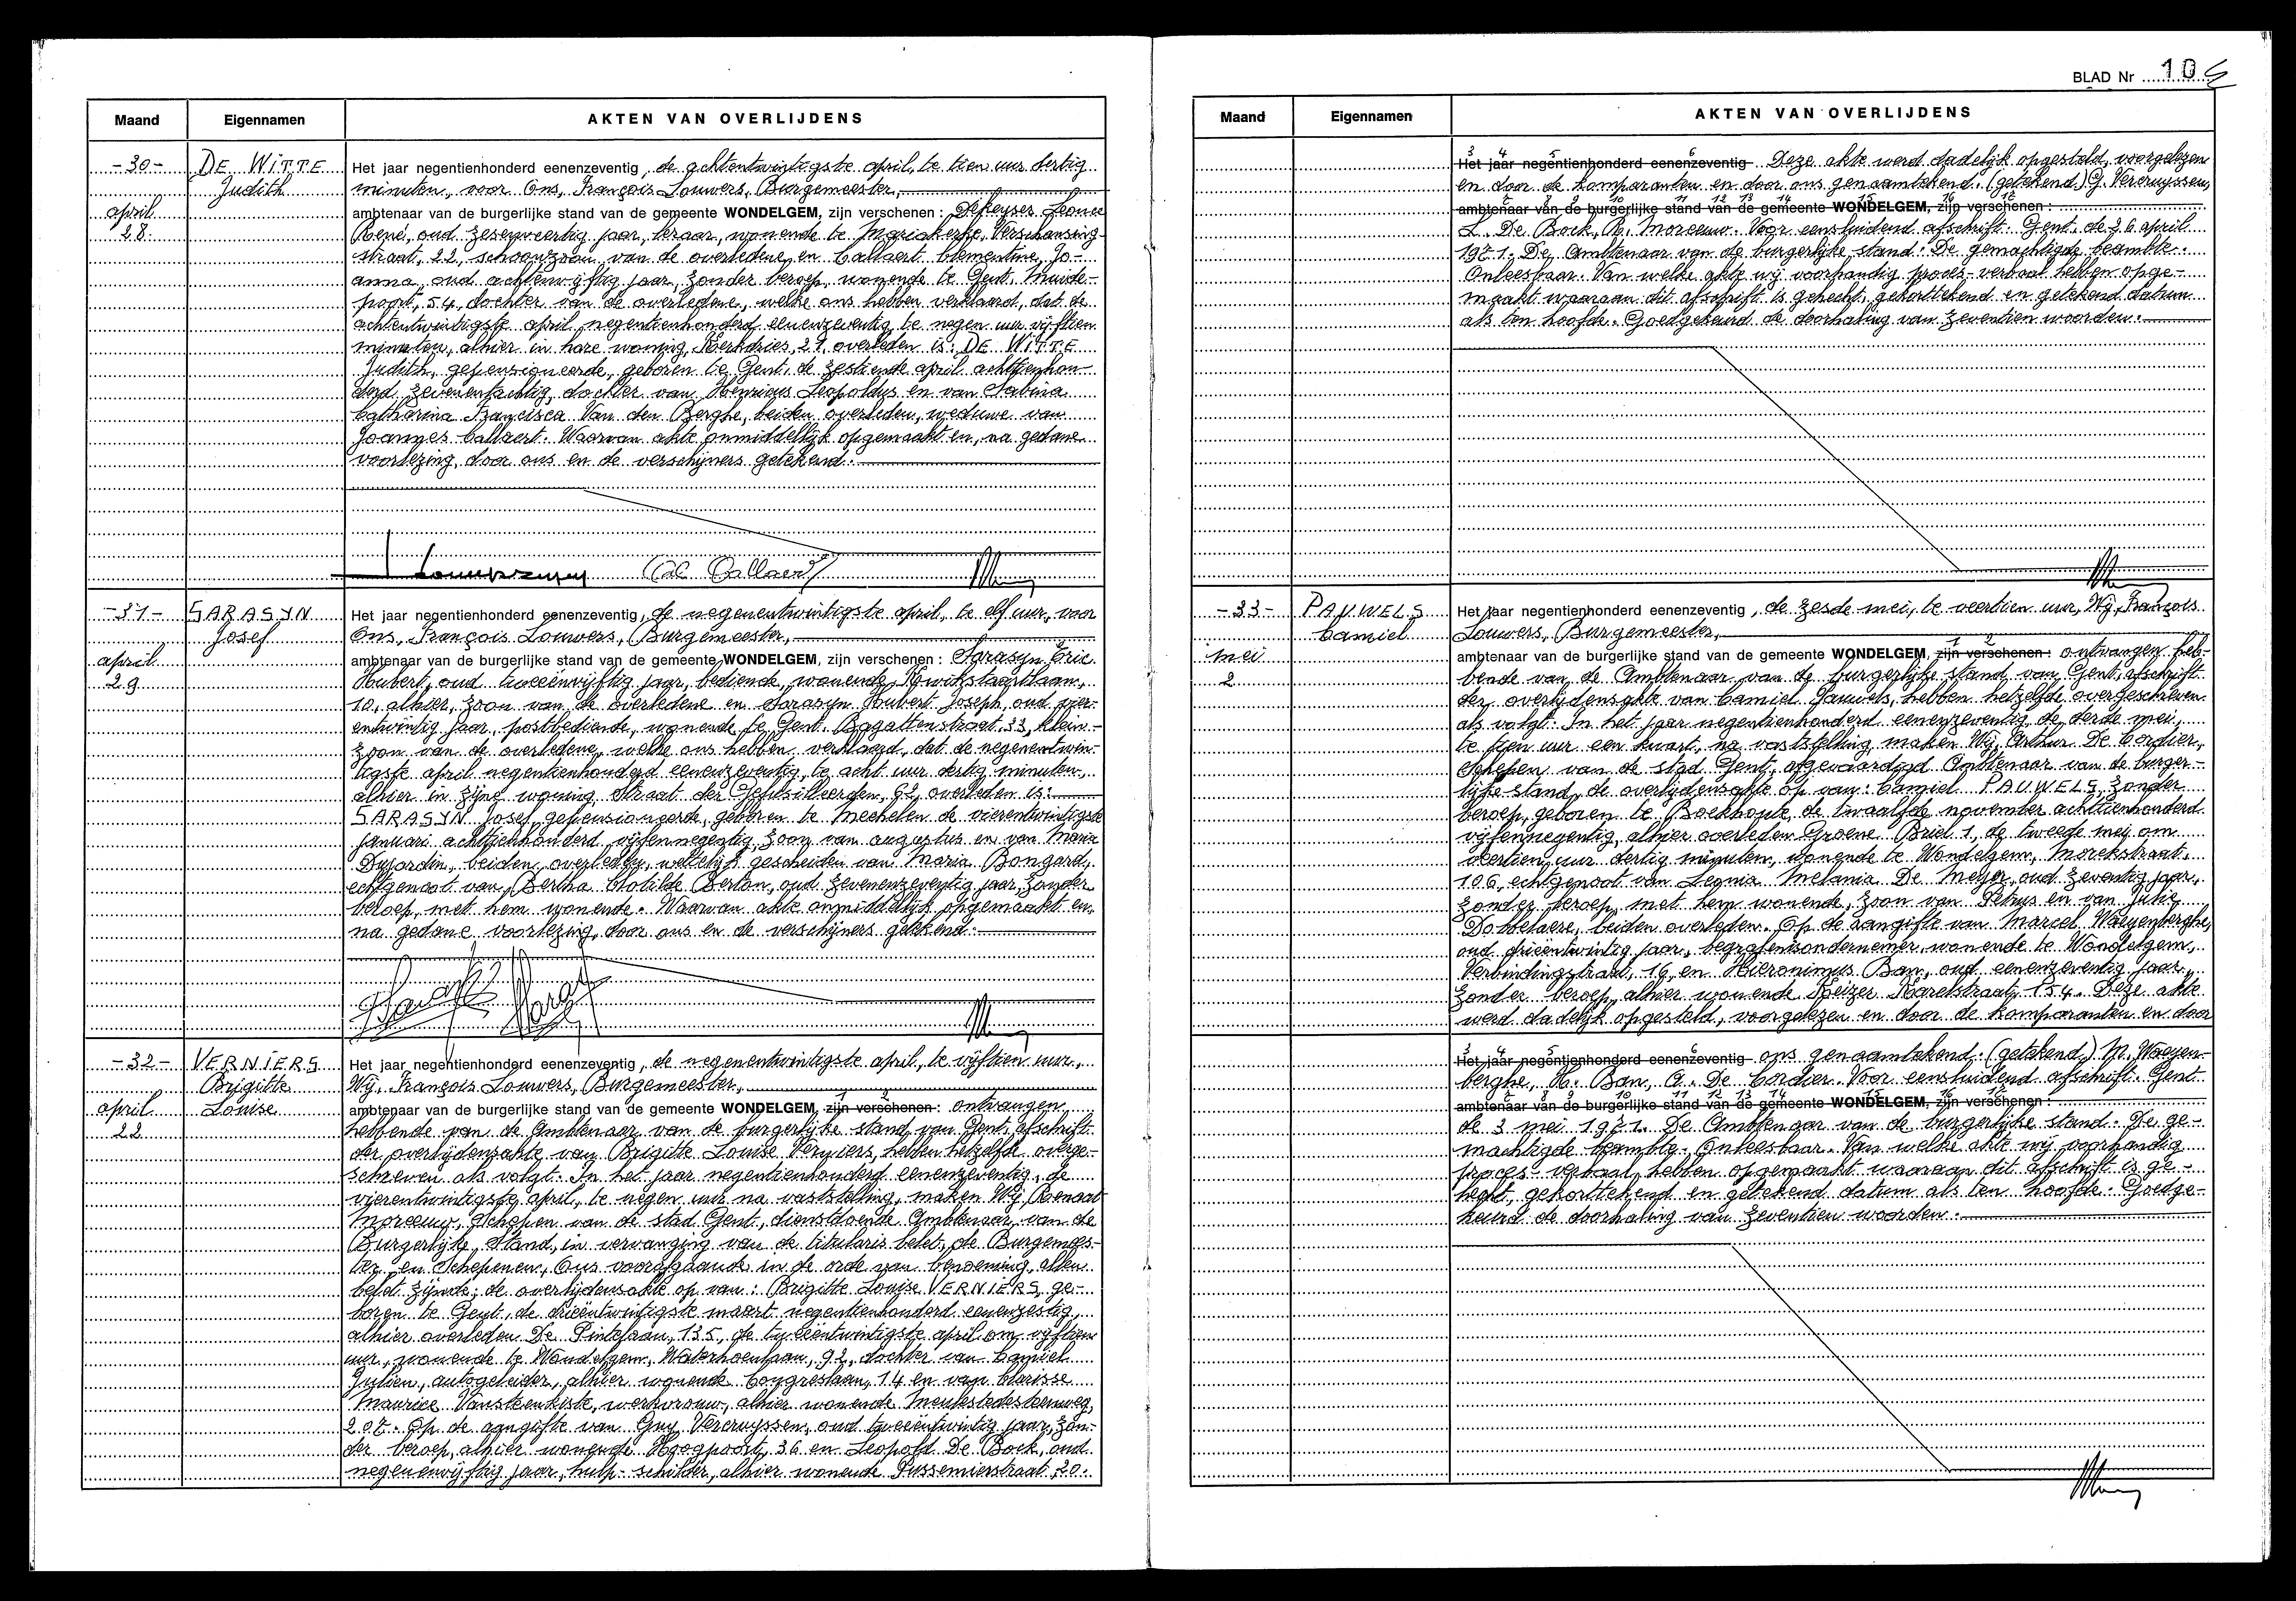 Maand Eigennamen AKTEN VAN OVERLIJDENS
-30- DE WITTE
Judith
april
28
Het jaar negentienhonderd eenenzeventig, de achtentwintigste april, te tien uur dertig
minuten, voor Ons, François Louwers, Burgemeester,
ambtenaar van de burgerlijke stand van de gemeente WONDELGEM, zijn verschenen : Dekeyser Leonce
René, oud zesenveertig jaar, leraar, wonende te Mariakerke, Verschansing-
straat, 22, schoonzoon van de overledene en Callaert Clementine Jo-
anna, oud achtenvijftig jaar, zonder beroep, wonende te Gent, Muide-
poort, 54, dochter van de overledene, welke ons hebben verklaard, dat de
achtentwintigste april negentienhonderd eenenzeventig te negen uur vijftien
minuten, alhier in hare woning, Kerkdries, 21, overleden is: DE WITTE
Judith, gepensioneerde, geboren te Gent, de zestiende april achttienhon-
derd zevenentachtig, dochter van Henricus Leopoldus en van Sabina
Catharina Francisca Van den Berghe, beiden overleden, weduwe van
Joannes Callaert. Waarvan akte onmiddellijk opgemaakt en, na gedane
voorlezing, door ons en de verschijners getekend.
-31- SARASYN
Josef
april
29
Het jaar negentienhonderd eenenzeventig, de negenentwintigste april, te elf uur, voor
Ons, François Louwers, Burgemeester,
ambtenaar van de burgerlijke stand van de gemeente WONDELGEM, zijn verschenen : Sarasyn Eric
Hubert, oud tweeënvijftig jaar, bediende, wonende, Kwikstaartlaan,
10, alhier, zoon van de overledene en Sarasyn Houbert Joseph, oud vier-
entwintig jaar, postbediende, wonende te Gent, Bagattenstraat, 33, klein-
zoon van de overledene, welke ons hebben verklaard, dat de negenentwin-
tigste april negentienhonderd eenenzeventig, te acht uur dertig minuten,
alhier in zijne woning, Straat der Gefusilleerden, 92, overleden is:
SARASYN Josef, gepensioneerde, geboren te Mechelen de vierentwintigste
januari achttienhonderd vijfennegentig, zoon van Augustus en van Maria
Dujardin, beiden overleden, wettelijk gescheiden van Maria Bongard,
echtgenoot van Bertha Clotilde Berton, oud zevenenzeventig jaar, zonder
beroep, met hem wonende. Waarvan akte onmiddellijk opgemaakt en,
na gedane voorlezing, door ons en de verschijners getekend.
-32- VERNIERS
Brigitte
Louise
april
22
Het jaar negentienhonderd eenenzeventig, de negenentwintigste april, te vijftien uur,
Wij, François Louwers, Burgemeester,
ambtenaar van de burgerlijke stand van de gemeente WONDELGEM, zijn verschenen : ontvangen
hebbende van de Ambtenaar van de burgerlijke stand van Gent, afschrift
der overlijdensakte van Brigitte Louise Verniers, hebben hetzelfde overge-
schreven als volgt. In het jaar negentienhonderd eenenzeventig, de
vierentwintigste april, te negen uur na vaststelling, maken Wij, Renaat
Moreeuw, Schepen van de stad Gent, dienstdoende Ambtenaar van de
Burgerlijke Stand, in vervanging van de titularis belet, de Burgemees-
ter en Schepenen, Ons voorafgaande in de orde van benoeming, allen
belet zijnde; de overlijdensakte op van: Brigitte Louise VERNIERS, ge-
boren te Gent, de drieëntwintigste maart negentienhonderd eenenzestig,
alhier overleden De Pintelaan, 135, de tweeëntwintigste april om vijftien
uur, wonende te Wondelgem, Waterhoenlaan, 92, dochter van Camiel
Julien, autogeleider, alhier wonende Congreslaan, 14 en van Clarisse
Maurice Vansteenkiste, werkvrouw, alhier wonende Meulestedesteenweg,
207. Op de aangifte van Guy Vercruyssen, oud tweeëntwintig jaar, zon-
der beroep, alhier wonende Hoogpoort, 36 en Leopold De Bock, oud
negenenvijftig jaar, hulp-schilder, alhier wonende Sussemierstraat, 20.
BLAD Nr 105
Maand Eigennamen AKTEN VAN OVERLIJDENS
Het jaar negentienhonderd eenenzeventig Deze akte werd dadelijk opgesteld, voorgelezen
en door de komparanten en door ons genaamtekend. (getekend) G. Vercruyssen,
ambtenaar van de burgerlijke stand van de gemeente WONDELGEM, zijn verschenen :
L. De Bock, R. Moreeuw. Voor eensluidend afschrift. Gent, de 26 april
1971. De Ambtenaar van de burgerlijke stand. De gemachtigde beambte.
Onleesbaar. Van welke akte wij voorhandig proces-verbaal hebben opge-
maakt waaraan dit afschrift is gehecht, gekorttekend en getekend datum
als ten hoofde. Goedgekeurd de doorhaling van zeventien woorden.
-33- PAUWELS
Camiel
mei
2
Het jaar negentienhonderd eenenzeventig, de zesde mei, te veertien uur, Wij, François
Louwers, Burgemeester,
ambtenaar van de burgerlijke stand van de gemeente WONDELGEM, zijn verschenen : ontvangen heb-
bende van de Ambtenaar van de burgerlijke stand van Gent, afschrift
der overlijdensakte van Camiel Pauwels, hebben hetzelfde overgeschreven
als volgt. In het jaar negentienhonderd eenenzeventig, de derde mei,
te tien uur een kwart, na vaststelling, maken Wij, Arthur De Cordier,
Schepen van de stad Gent, afgevaardigd Ambtenaar van de burger-
lijke stand, de overlijdensakte op van: Camiel PAUWELS, zonder
beroep, geboren te Boekhoute, de twaalfde november achttienhonderd
vijfennegentig, alhier overleden Groene Briel 1, de tweede mei om
veertien uur dertig minuten, wonende te Wondelgem, Morekstraat,
106, echtgenoot van Leonia Melania De Meyer, oud zeventig jaar,
zonder beroep, met hem wonende, zoon van Petrus en van Julie
Dobbelaere, beiden overleden. Op de aangifte van Marcel Waeyenberghe,
oud drieëntwintig jaar, begrafenisondernemer, wonende te Wondelgem,
Verbindingstraat, 16, en Hieronimus Ban, oud eenenzeventig jaar,
zonder beroep, alhier wonende Keizer Karelstraat, 154. Deze akte
werd dadelijk opgesteld, voorgelezen en door de komparanten en door
Het jaar negentienhonderd eenenzeventig ons genaamtekend. (getekend.) M. Waeyen-
berghe, H. Ban, A. De Cordier. Voor eensluidend afschrift. Gent
ambtenaar van de burgerlijke stand van de gemeente WONDELGEM, zijn verschenen :
de 3 mei 1971. De Ambtenaar van de burgerlijke stand. De ge-
machtigde beambte. Onleesbaar. Van welke akte wij voorhandig
proces-verbaal hebben opgemaakt waaraan dit afschrift is ge-
hecht, gekorttekend en getekend datum als ten hoofde. Goedge-
keurd de doorhaling van zeventien woorden.